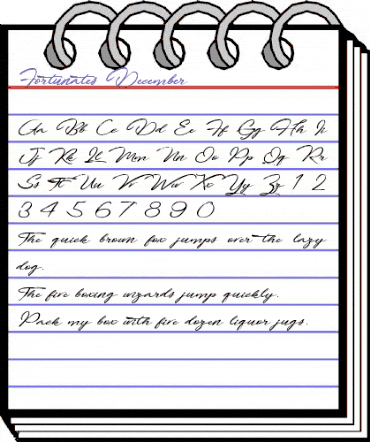 Fortunates December
Aa Bb Cc Dd Ee Ff Gg Hh Ii
Jj Kk Ll Mm Nn Oo Pp Qq Rr
Ss Tt Uu Vv Ww Xx Yy Zz 1 2
3 4 5 6 7 8 9 0
The quick brown fox jumps over the lazy
dog.
The five boxing wizards jump quickly.
Pack my box with five dozen liquor jugs.